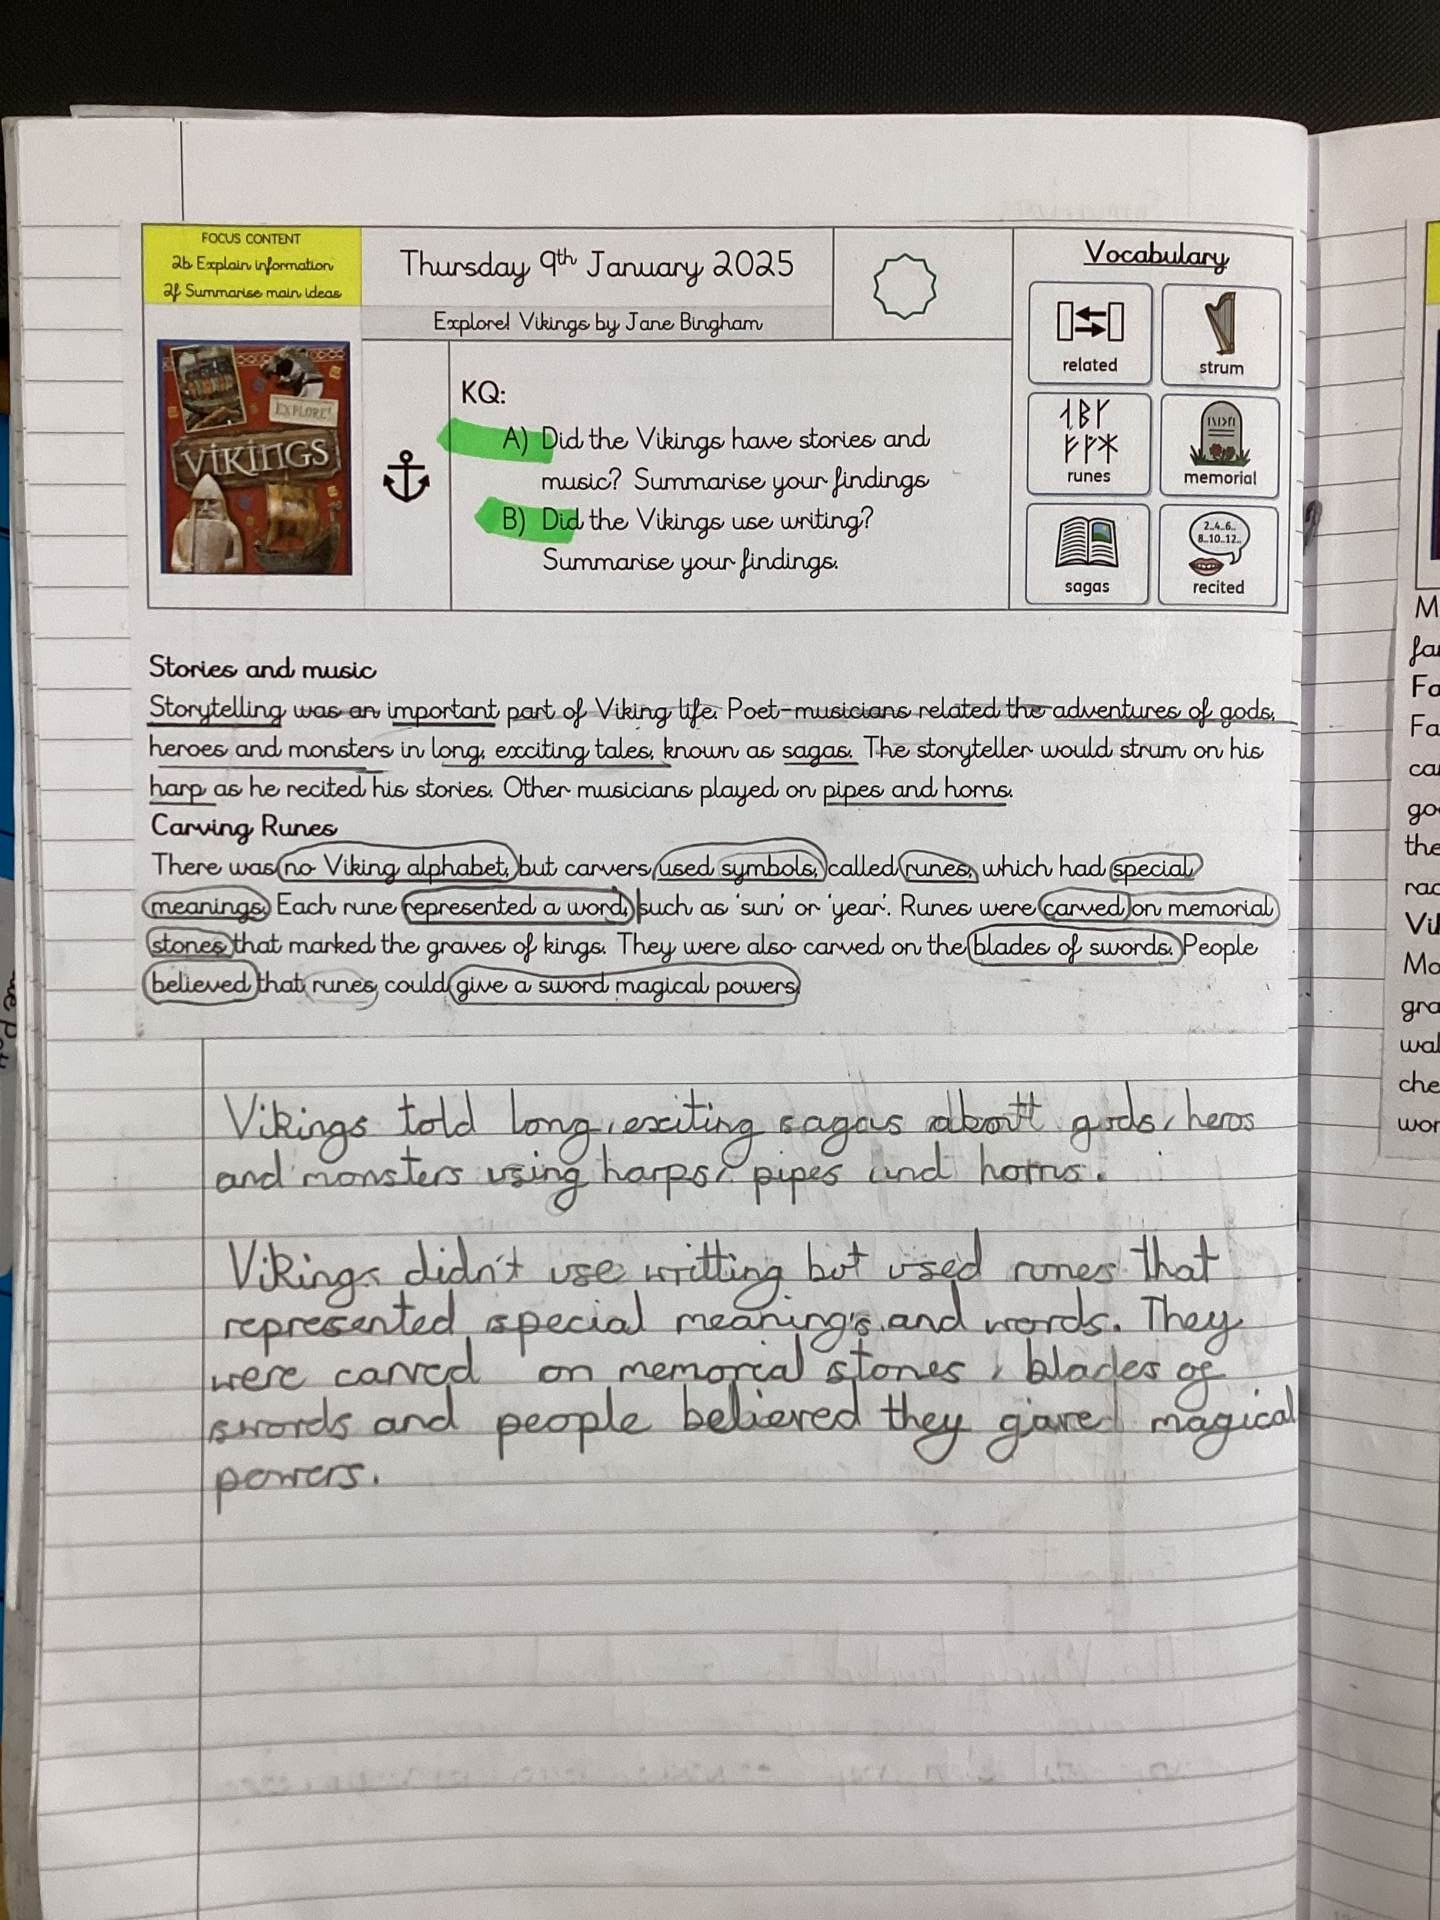 FOCUS CONTENT
2b Explain information
2f Summarise main ideas
Thursday 9th January 2025
Explore! Vikings by Jane Bingham
EXPLORE!
VIKINGS
KQ:
A) Did the Vikings have stories and
music? Summarise your findings
B) Did the Vikings use writing?
Summarise your findings.
Vocabulary
related
strum
runes
memorial
2..4..6..
8..10..12..
sagas
recited
Stories and music
Storytelling was an important part of Viking life. Poet-musicians related the adventures of gods,
heroes and monsters in long, exciting tales, known as sagas. The storyteller would strum on his
harp as he recited his stories. Other musicians played on pipes and horns.
Carving Runes
There was no Viking alphabet, but carvers used symbols, called runes, which had special
meanings. Each rune represented a word, such as 'sun' or 'year'. Runes were carved on memorial
stones that marked the graves of kings. They were also carved on the blades of swords. People
believed that runes could give a sword magical powers.
Vikings told long, exciting sagas about gods, heros
and monsters using harps, pipes and horns.
Vikings didn't use writting but used runes that
represented special meaning's and words. They
were carved on memorial stones, blades of
swords and people believed they gaved magical
powers.
M
fa
Fa
Fa
ca
go
the
rac
Vi
Mo
gra
wal
che
wor